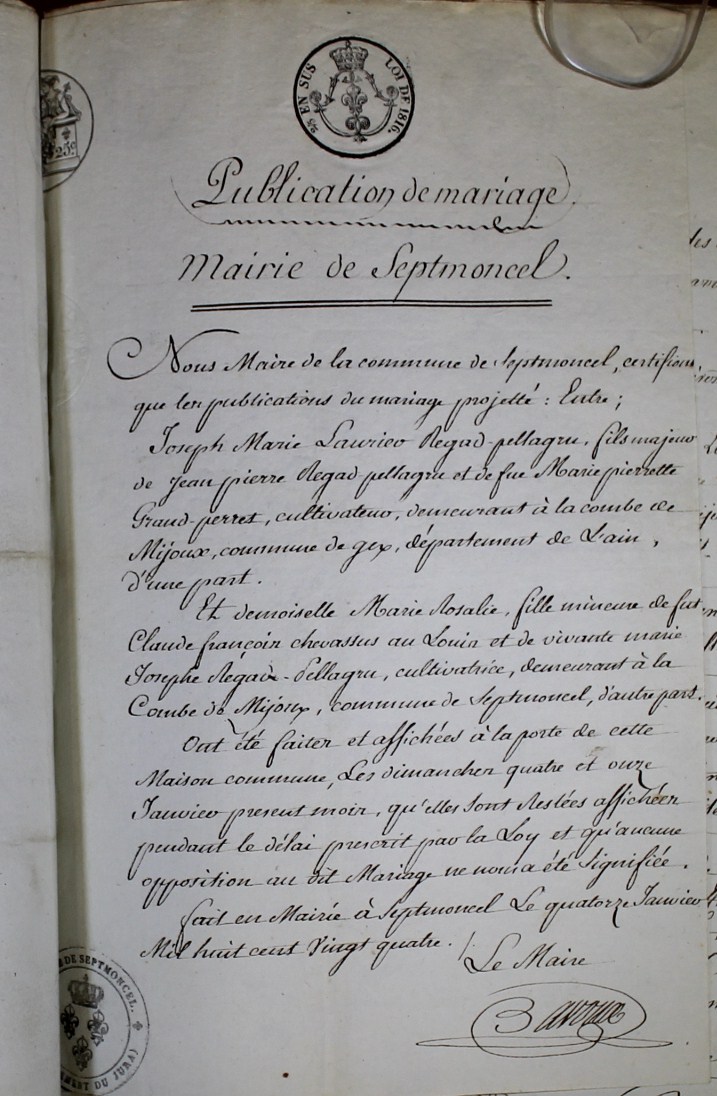 EN SUS LOI DE 1816.
25c
Publication de mariage.
Mairie de Septmoncel.
Nous Maire de la commune de Septmoncel, certifions
que les publications du mariage projetté : Entre ;
Joseph Marie Laurico Regad-pellagru, fils majeur
de Jean pierre Regad-pellagru et de fue Marie pierrette
Grand-perret, cultivateur, demeurant à la combe de
Mijoux, commune de gex, département de L'ain,
d'une part.
Et demoiselle Marie Rosalie, fille mineure de fut
Claude françois chevassus au Louis et de vivante marie
Josephe Régad-Pellagru, cultivatrice, demeurant à la
Combe de Mijoux, commune de Septmoncel, d'autre part.
Ont été faites et affichées à la porte de cette
Maison commune, Les dimanches quatre et onze
Janvier present mois, qu'elles sont Restées affichées
pendant le délai prescrit par la Loy et qu'aucune
opposition au dit Mariage ne nous a été Signifiée.
fait en Mairie à Septmoncel Le quatorze Janvier
Mil huit cent Vingt quatre.
Le Maire
DE SEPTMONCEL.
MENT DU JURA)